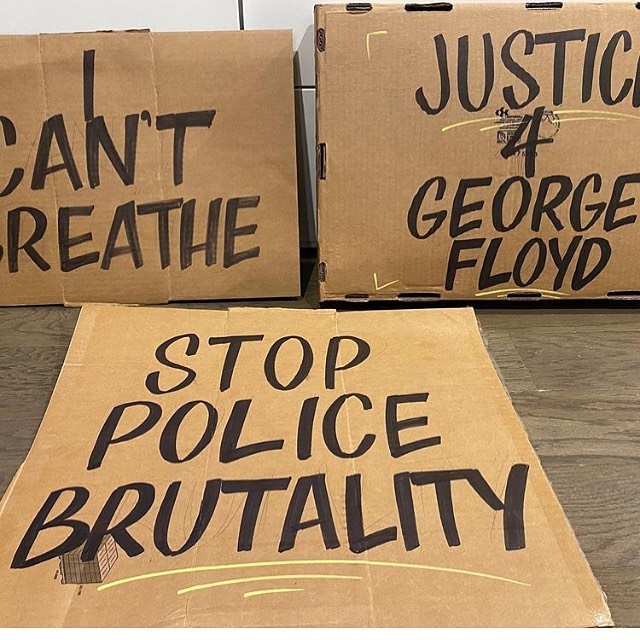 I
CAN'T
BREATHE
JUSTICE
4
GEORGE
FLOYD
STOP
POLICE
BRUTALITY